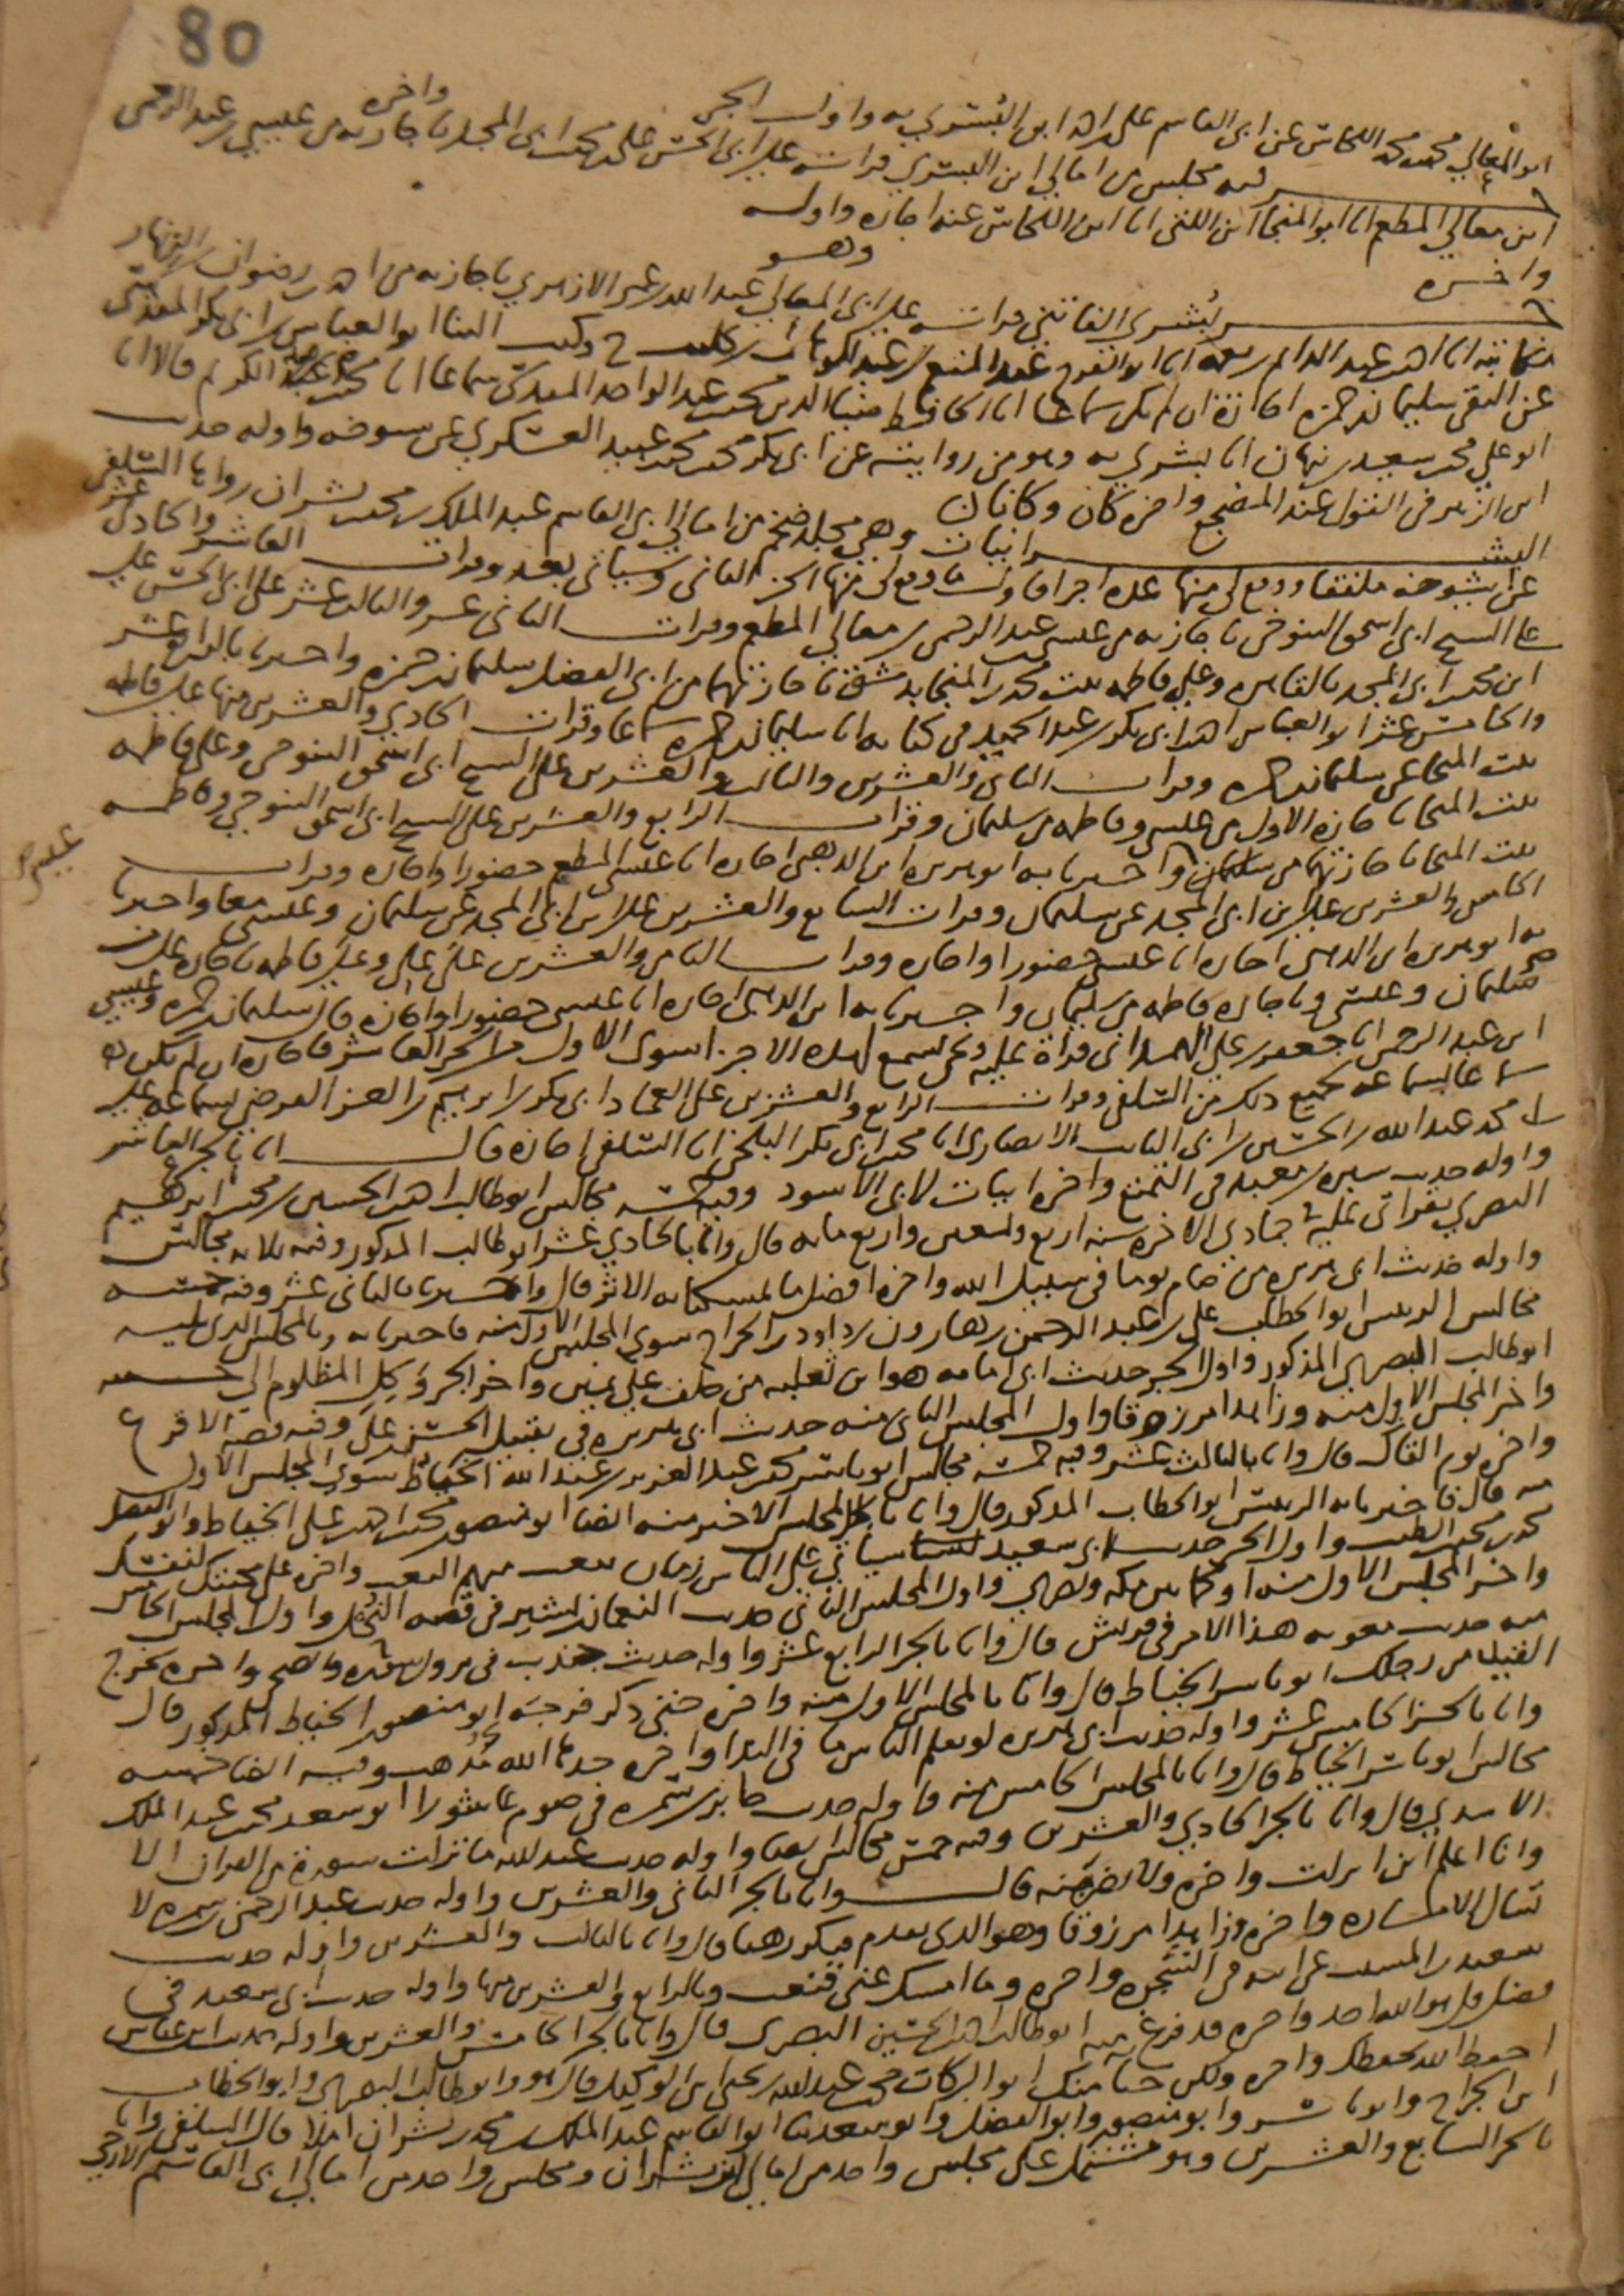 80
ابو المعالي محمد بن محمد اللحاس عن ابي القاسم علي بن احمد ابن البسري به واول الجزء واخره
فيه مجلس من امالي ابن البسري قرات على ابي الحسن علي بن محمد بن ابي المجد باجازته من عيسى بن عبد الرحمن
ابن معالي المطعم انا ابو المنجا ابن اللتي انا ابن اللحاس عنه اجازه واوله
واخره وهو
بشرى الفاتني قرات على ابي المعالي عبد الله بن عمر الازهري باجازته من احمد بن رضوان بن الزنهار
مكاتبه انا احمد بن عبد الدايم انا ابو الفرج عبد المنعم بن عبد الوهاب بن كليب ح وكتب الينا ابو العباس بن ابي بكر المقدسي
عن التقي سليمان بن حمزه اجازة ان لم يكن سماعا انا الحافظ ضيا الدين محمد بن عبد الواحد المقدسي سماعا انا محمد عبد الكريم قالا انا
ابو علي محمد بن سعيد بن نبهان انا بشرى به وهو من روايته عن ابي بكر محمد بن محمد بن عبيد العسكري عن شيوخه واوله حديث
ابن الزبير في القول عند المضجع واخره كان وكانا
البشرانيات وهي مجلد ضخم من امالي ابي القاسم عبد الملك بن محمد بن بشران رواها السلفي
عن شيوخه ملفقا ووقع لي منها عدة اجزا فاول ما وقع لي منها الجزء الثاني وسياتي بعد وقرات العاشر والحادي عشر
على الشيخ ابي اسحق التنوخي باجازته من عيسى بن عبد الرحمن بن معالي المطعم وقرات الثاني عشر والثالث عشر على ابي الحسن علي
ابن محمد بن ابي المجد بالقاهره وعلى فاطمه بنت محمد بن المنجا بدمشق باجازتهما من ابي الفضل سليمان بن حمزه واخبرنا بالرابع عشر
والخامس عشر ابو العباس احمد بن ابي بكر بن عبد الحميد في كتابه انا سليمان بن حمزه سماعا وقرات الحادي والعشرين منها على فاطمه
بنت المنجا عن سليمان بن حمزه وقرات الثاني والعشرين والثالث والعشرين على الشيخ ابي اسحق التنوخي وعلى فاطمه
بنت المنجا باجازة الاول من عيسى وفاطمه من سليمان وقرات الرابع والعشرين على الشيخ ابي اسحق التنوخي وفاطمه
بنت المنجا باجازتهما من سليمان واخبرنا به ابو هريره ابن الذهبي اجازه انا عيسى المطعم حضورا واجازه وقرات
الخامس والعشرين على ابن ابي المجد عن سليمان وقرات السابع والعشرين على ابن ابي المجد عن سليمان وعيسى معا واخبرنا
به ابو هريره ابن الذهبي اجازه انا عيسى حضورا واجازه وقرات الثامن والعشرين على علي وعلى فاطمه باجازة علي من
سليمان وعيسى وباجازه فاطمه من سليمان واخبرنا به ابن الذهبي اجازه انا عيسى حضورا واجازه قال سليمان بن حمزه وعيسى
ابن عبد الرحمن انا جعفر بن علي الهمداني قراة عليه ونحن نسمع لهذه الاجزا سوى الاول من الجزء العاشر فاجازه ان لم يكن
سماعا لسماعه لجميع ذلك من السلفي وقرات الرابع والعشرين على العماد ابي بكر بن ابراهيم بن العز الفرضي بسماعه على
محمد بن عبد الله بن الحسين بن ابي التائب الانصاري انا محمد بن ابي بكر البلخي انا السلفي اجازه قال انا بالجزء العاشر
واوله حديث سبره بن معبد في التمتع واخره ابيات لابي الاسود وفيه خمسه مجالس ابو طالب احمد بن الحسين بن محمد بن ابراهيم
البصري بقراتي عليه في جمادى الاخره سنه اربع وتسعين واربع مايه قال وانا بالحادي عشر ابو طالب المذكور وفيه ثلاثه مجالس
واوله حديث ابي هريره من صام يوما في سبيل الله واخره افضل ما لمستكتابه الاثر قال واخبرنا بالثاني عشر وفيه خمسه
مجالس الرييس ابو الخطاب علي بن عبد الرحمن بن هارون بن داود بن الجراح سوى المجلس الاول منه فاخبرنا به وبالمجلس الذي يليه
ابو طالب البصري المذكور واول الجزء حديث ابي امامه هو ابن ثعلبه من حلف على يمين واخر الجزء وكل المظلوم الى خصمه
واخر المجلس الاول منه وزاهدا مرزوقا واول المجلس الثاني منه حديث ابي هريره في تقبيل الحسن بن علي وفيه قصه الاقرع
واخره يوم القاك قال وانا بالثالث عشر وفيه خمسه مجالس ابو ياسر محمد بن عبد العزيز بن عبد الله الخياط سوى المجلس الاول
منه قال فاخبرنا به الرييس ابو الخطاب المذكور قال وانا بالمجلس الاخير منه ايضا ابو منصور محمد بن احمد بن علي الخياط وابو الفضل
محمد بن محمد بن الطيب واول الجزء حديث ابي سعيد ياتي على الناس زمان يبعث منهم البعث واخره على محنتك لنفسك
واخر المجلس الاول منه او كما بين مكه وبصرى واول المجلس الثاني حديث النعمان بن بشير في قصه النحل واول المجلس الخامس
منه حديث معويه هذا الامر في قريش قال وانا بالجزء الرابع عشر واوله حديث جندب في نزول سوره والضحى واخره نخرج
القتيل من رحلك ابو ياسر الخياط قال وانا بالمجلس الاول منه واخره حتى ذكر فرجه ابو منصور الخياط المذكور قال
وانا بالجزء الخامس عشر واوله حديث ابي هريره لو يعلم الناس ما في الندا واخره حدثنا الله مذهب وفيه ايضا خمسه
مجالس ابو ياسر الخياط قال وانا بالمجلس الخامس منه فاوله حديث جابر بن سمره في صوم عاشورا ابو سعد محمد بن عبد الملك
الاسدي قال وانا بالجزء الحادي والعشرين وفيه خمس مجالس ايضا واوله حديث عبد الله ما نزلت سورة من القران الا
وانا اعلم اين انزلت واخره قال وانا بالجزء الثاني والعشرين واوله حديث عبد الرحمن بن سمره لا
تسال الاماره واخره وزاهدا مرزوقا وهو الذي تقدم فيكرر هنا قال وانا بالثالث والعشرين واوله حديث
سعيد بن المسيب عن ابيه في الشجره واخره وما امسك عني فنعيب وبالرابع والعشرين منها واوله حديث ابي سعيد في
فضل قل هو الله احد واخره قد فرغ منه ابو طالب احمد بن الحسين البصري قال وانا بالجزء الخامس والعشرين واوله حديث ابن عباس
احفظ الله يحفظك واخره ولكن حياء منك ابو البركات محمد بن عبد الله بن يحيى ابن الوكيل قال هو وابو طالب البصري وابو الخطاب
ابن الجراح وابو ياسر وابو منصور وابو الفضل وابو سعد ثنا ابو القاسم عبد الملك بن محمد بن بشران املا قال السلفي وانا
بالجزء السابع والعشرين وهو مشتمل على مجلس واحد من امالي ابن بشران ومجلس واحد من امالي ابي القاسم الازجي